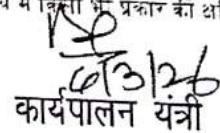 में किसी भी प्रकार की
6/3/26
कार्यपालन यंत्री